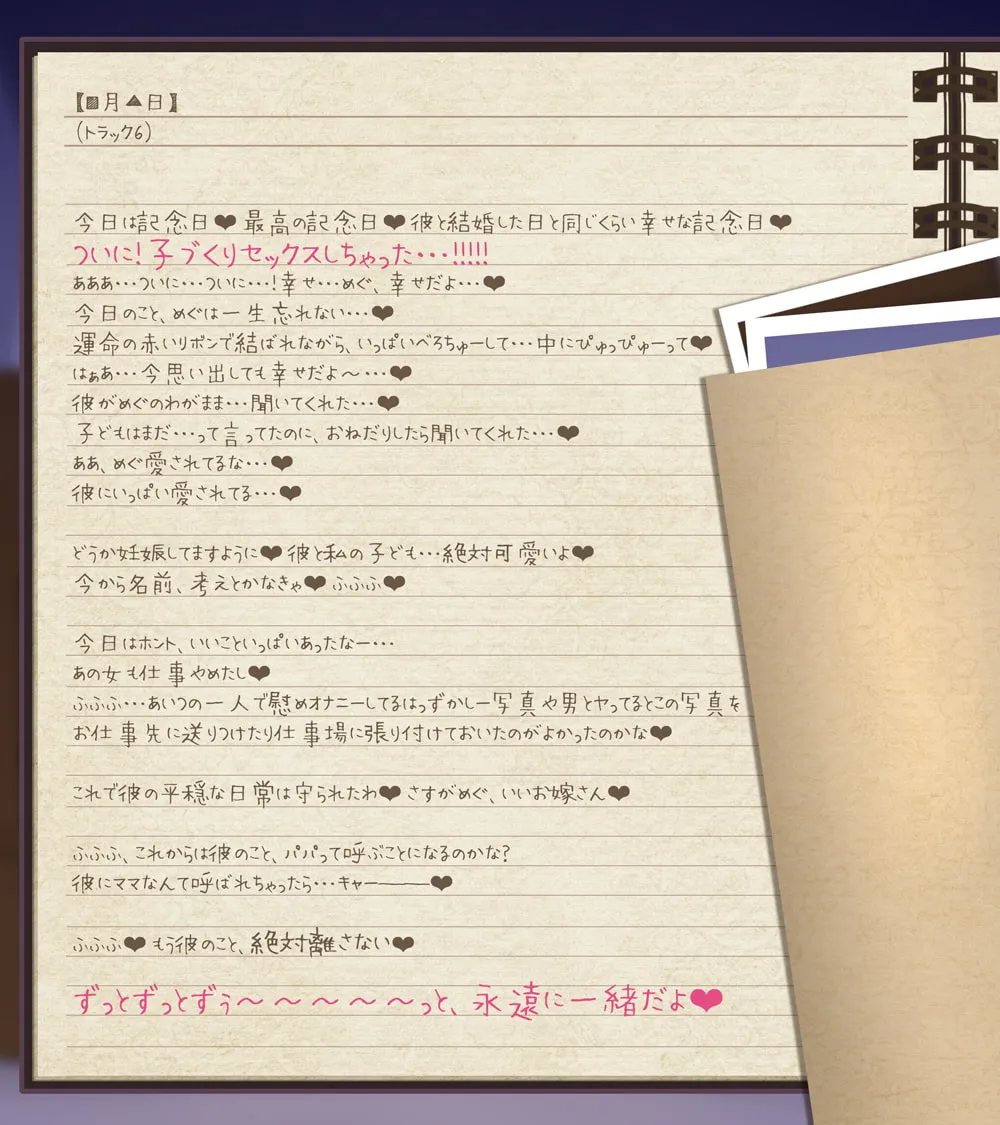 【■月▲日】
(トラック6)
今日は記念日❤最高の記念日❤彼と結婚した日と同じくらい幸せな記念日❤
ついに!子づくりセックスしちゃった・・・!!!!!
あああ・・・ついに・・・ついに・・・!幸せ・・・めぐ、幸せだよ・・・❤
今日のこと、めぐは一生忘れない・・・❤
運命の赤いリボンで結ばれながら、いっぱいべろちゅーして・・・中にぴゅっぴゅーって❤
はぁあ・・・今思い出しても幸せだよ～・・・❤
彼がめぐのわがまま・・・聞いてくれた・・・❤
子どもはまだ・・・って言ってたのに、おねだりしたら聞いてくれた・・・❤
ああ、めぐ愛されてるな・・・❤
彼にいっぱい愛されてる・・・❤
どうか妊娠してますように❤彼と私の子ども・・・絶対可愛いよ❤
今から名前、考えとかなきゃ❤ふふふ❤
今日はホント、いいこといっぱいあったなー・・・
あの女も仕事やめたし❤
ふふふ・・・あいつの一人で慰めオナニーしてるはっずかしー写真や男とヤってるとこの写真を
お仕事先に送りつけたり仕事場に張り付けておいたのがよかったのかな❤
これで彼の平穏な日常は守られたわ❤さすがめぐ、いいお嫁さん❤
ふふふ、これからは彼のこと、パパって呼ぶことになるのかな?
彼にママなんて呼ばれちゃったら・・・キャー―――❤
ふふふ❤もう彼のこと、絶対離さない❤
ずっとずっとずぅ～～～～～っと、永遠に一緒だよ❤